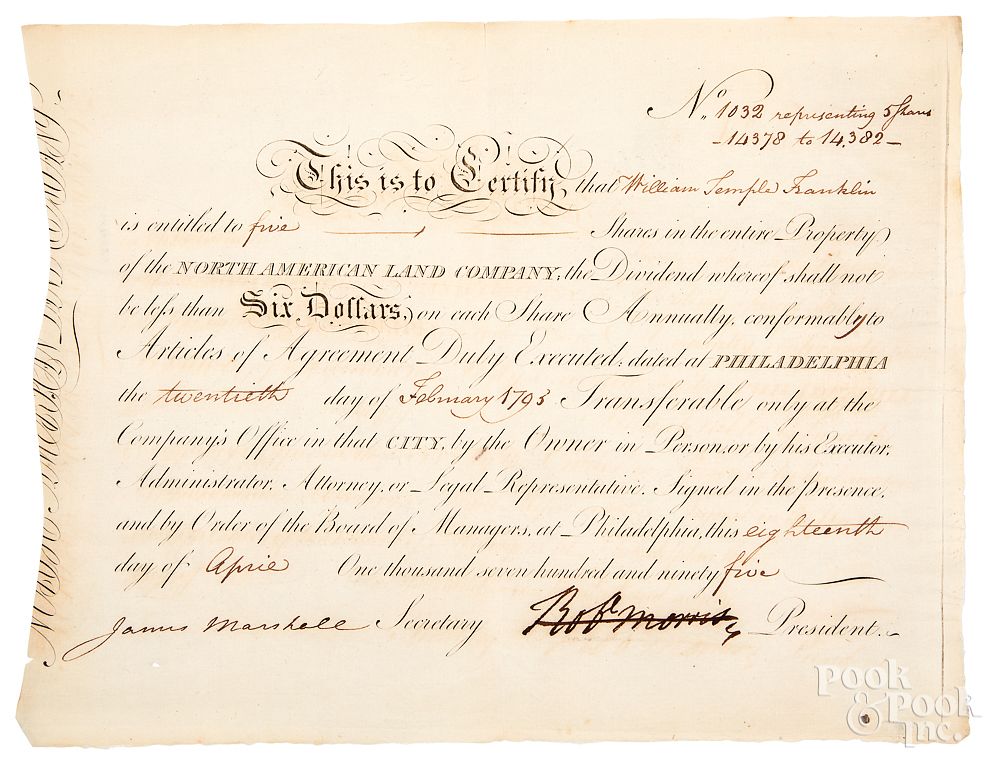 No. 1032 representing 5 Shares
-14378 to 14,382-
This is to Certify, that William Temple Franklin
is entitled to five Shares in the entire Property
of the NORTH AMERICAN LAND COMPANY; the Dividend whereof shall not
be less than Six Dollars, on each Share Annually, conformably to
Articles of Agreement Duly Executed; dated at PHILADELPHIA
the twentieth day of February 1795 Transferable only at the
Company's Office in that CITY, by the Owner in Person, or by his Executor,
Administrator, Attorney, or Legal Representative. Signed in the presence,
and by Order of the Board of Managers, at Philadelphia, this eighteenth
day of April One thousand seven hundred and ninety five
James Marshall Secretary Robt Morris President.
NORTH AMERICAN LAND COMPANY
Pook
& Pook
Inc.